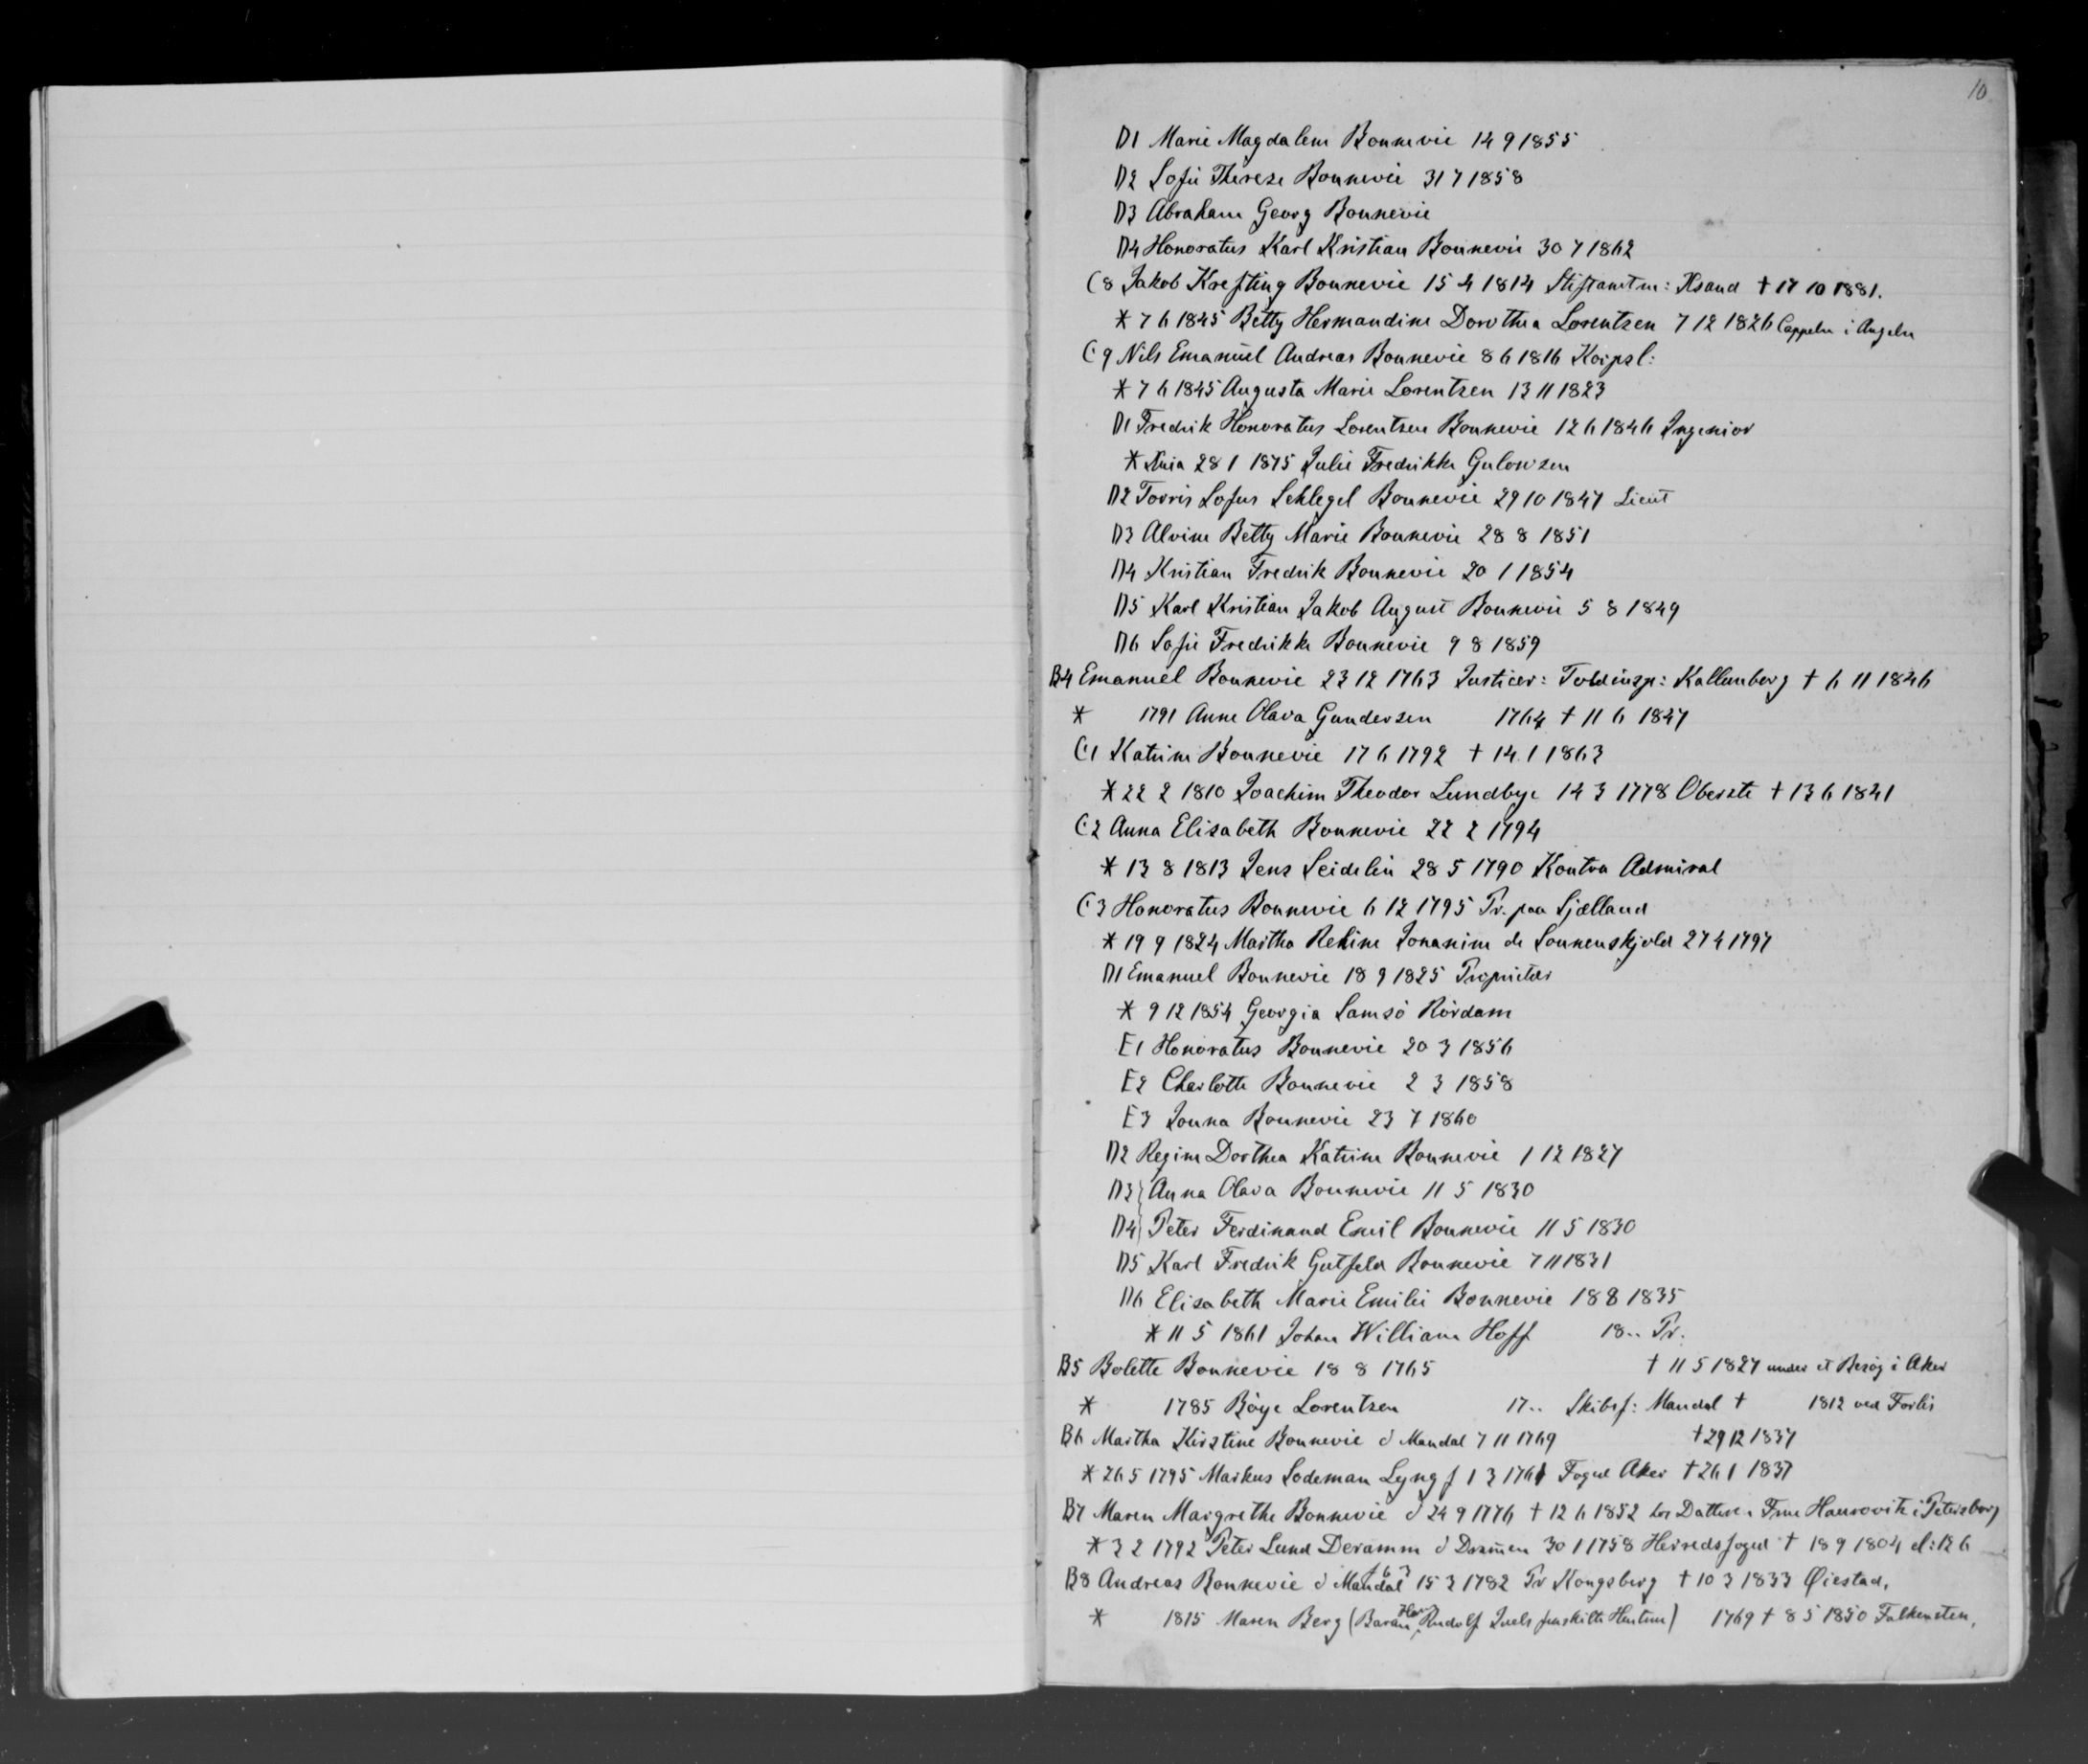 10
D1 Marie Magdalene Bonnevie 14 9 1855
D2 Sofie Therese Bonnevie 31 7 1858
D3 Abraham Georg Bonnevie
D4 Honoratus Karl Kristian Bonnevie 30 7 1862
C8 Jakob Krefting Bonnevie 15 4 1814 Stiftamtm: Xsand † 17 10 1881.
* 7 6 1845 Betty Hermandine Dorothea Lorentzen 7 12 1826 Cappeln i Angeln
C9 Nils Emanuel Andreas Bonnevie 8 6 1816 Korpsl:
* 7 6 1845 Augusta Marie Lorentzen 13 11 1823
D1 Fredrik Honoratus Lorentzen Bonnevie 12 6 1846 Ingeniør
* Xnia 28 1 1875 Julie Fredrikke Gulowsen
D2 Torris Sofus Schlegel Bonnevie 29 10 1847 Lieut
D3 Alvine Betty Marie Bonnevie 28 8 1851
D4 Kristian Fredrik Bonnevie 20 1 1854
D5 Karl Kristian Jakob August Bonnevie 5 8 1849
D6 Sofie Fredrikke Bonnevie 9 8 1859
B4 Emanuel Bonnevie 23 12 1763 Justicer: Toldinsp: Kallunborg † 6 11 1846
* 1791 Anne Olava Gundersen 1764 † 11 6 1847
C1 Katrine Bonnevie 17 6 1792 † 14 1 1863
* 22 2 1810 Joachim Theodor Lundbye 14 3 1778 Oberste † 13 6 1841
C2 Anna Elisabeth Bonnevie 22 2 1794
* 13 8 1813 Jens Seidelin 28 5 1790 Kontra Admiral
C3 Honoratus Bonnevie 6 12 1795 Pr. paa Sjælland
* 19 9 1824 Martha Regine Jonanine de Sonnenskjold 27 4 1797
D1 Emanuel Bonnevie 18 9 1825 Proprietær
* 9 12 1854 Georgia Samsö Rördam
E1 Honoratus Bonnevie 20 3 1856
E2 Charlotte Bonnevie 2 3 1858
E3 Jonna Bonnevie 23 7 1860
D2 Regine Dorthea Katrine Bonnevie 1 12 1827
D3} Anna Olava Bonnevie 11 5 1830
D4} Peter Ferdinand Emil Bonnevie 11 5 1830
D5 Karl Fredrik Gutfeld Bonnevie 7 11 1831
D6 Elisabeth Marie Emilie Bonnevie 18 8 1835
* 11 5 1861 Johan William Hoff 18.. Pr.
B5 Bolette Bonnevie 18 8 1765 † 11 5 1827 under et Besög i Aker
* 1785 Böye Lorentzen 17.. Skibsf: Mandal † 1812 ved Forlis
B6 Martha Kirstine Bonnevie d Mandal 7 11 1769 † 29 12 1837
* 26 5 1795 Markus Sodeman Lyng f 1 3 1761 Foged Aker † 26 1 1837
B7 Maren Margrethe Bonnevie d 24 9 1776 † 12 6 1852 hos Datteren Frue Hanrovitz i Petersborg
* 3 2 1792 Peter Lund Deramm d Dramen 30 1 1758 Herredsfoged † 18 9 1804 el: 12 6
B8 Andreas Bonnevie d Mandal 15 3 1782 Pr Kongsberg † 10 3 1833 Øiestad,
* 1815 Maren Berg (Baron Rudolf Juels fraskilte Hustru) 1769 † 8 5 1850 Falkensten,